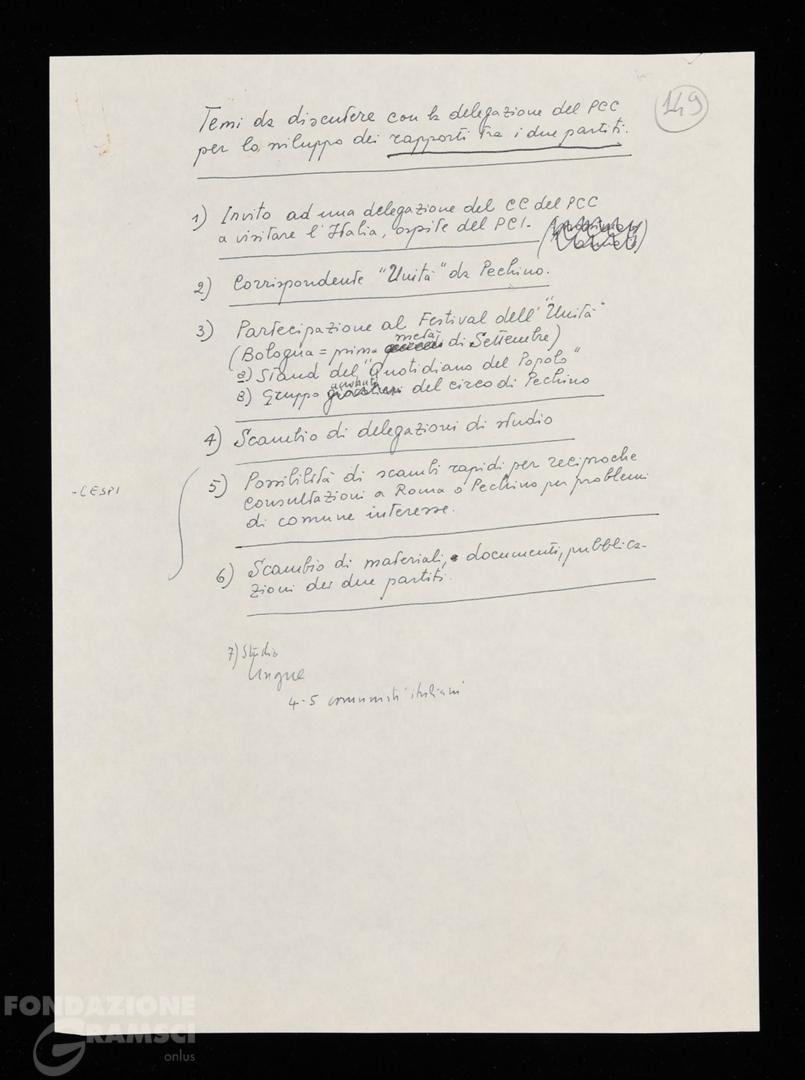 149
Temi da discutere con la delegazione del PCC
per lo sviluppo dei rapporti tra i due partiti.
1) Invito ad una delegazione del CC del PCC
a visitare l'Italia, ospite del PCI.
2) Corrispondente "Unità" da Pechino.
3) Partecipazione al Festival dell'"Unità"
(Bologna = prima metà di Settembre)
a) Stand del "Quotidiano del Popolo"
B) Gruppo acrobati del circo di Pechino
4) Scambio di delegazioni di studio
- CESPI
5) Possibilità di scambi rapidi per reciproche
consultazioni a Roma o Pechino per problemi
di comune interesse.
6) Scambio di materiali, documenti, pubblica-
zioni dei due partiti.
7) Studio
lingue
4-5 comunisti italiani
FONDAZIONE
GRAMSCI
onlus